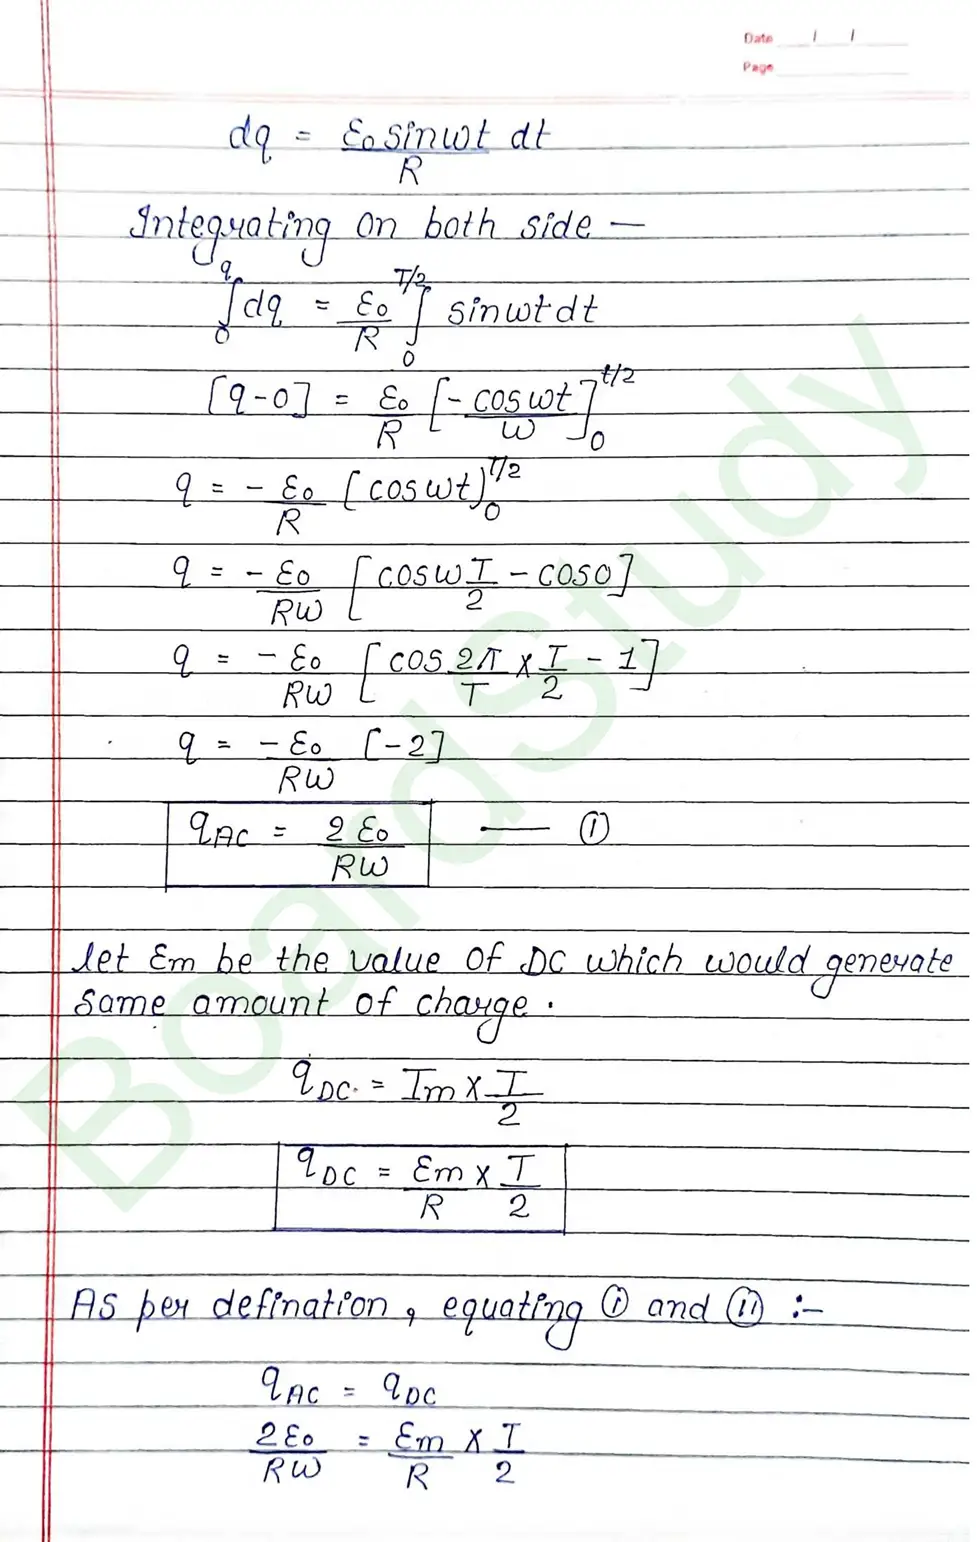 Date / /
Page
dq = ε₀ sinωt / R dt
Integrating on both side —
∫₀^q dq = ε₀/R ∫₀^T/2 sinωt dt
[q-0] = ε₀/R [-cosωt/ω]₀^t/2
q = - ε₀/R [cosωt)₀^T/2
q = -ε₀/Rω [cosω T/2 - cos0]
q = -ε₀/Rω [cos 2π/T × T/2 - 1]
q = -ε₀/Rω [-2]
qAC = 2ε₀/Rω —— (i)
let εm be the value of DC which would generate
same amount of charge.
qDC. = Im × T/2
qDC = εm/R × T/2
As per defination, equating (i) and (ii) :-
qAC = qDC
2ε₀/Rω = εm/R × T/2
BoardStudy